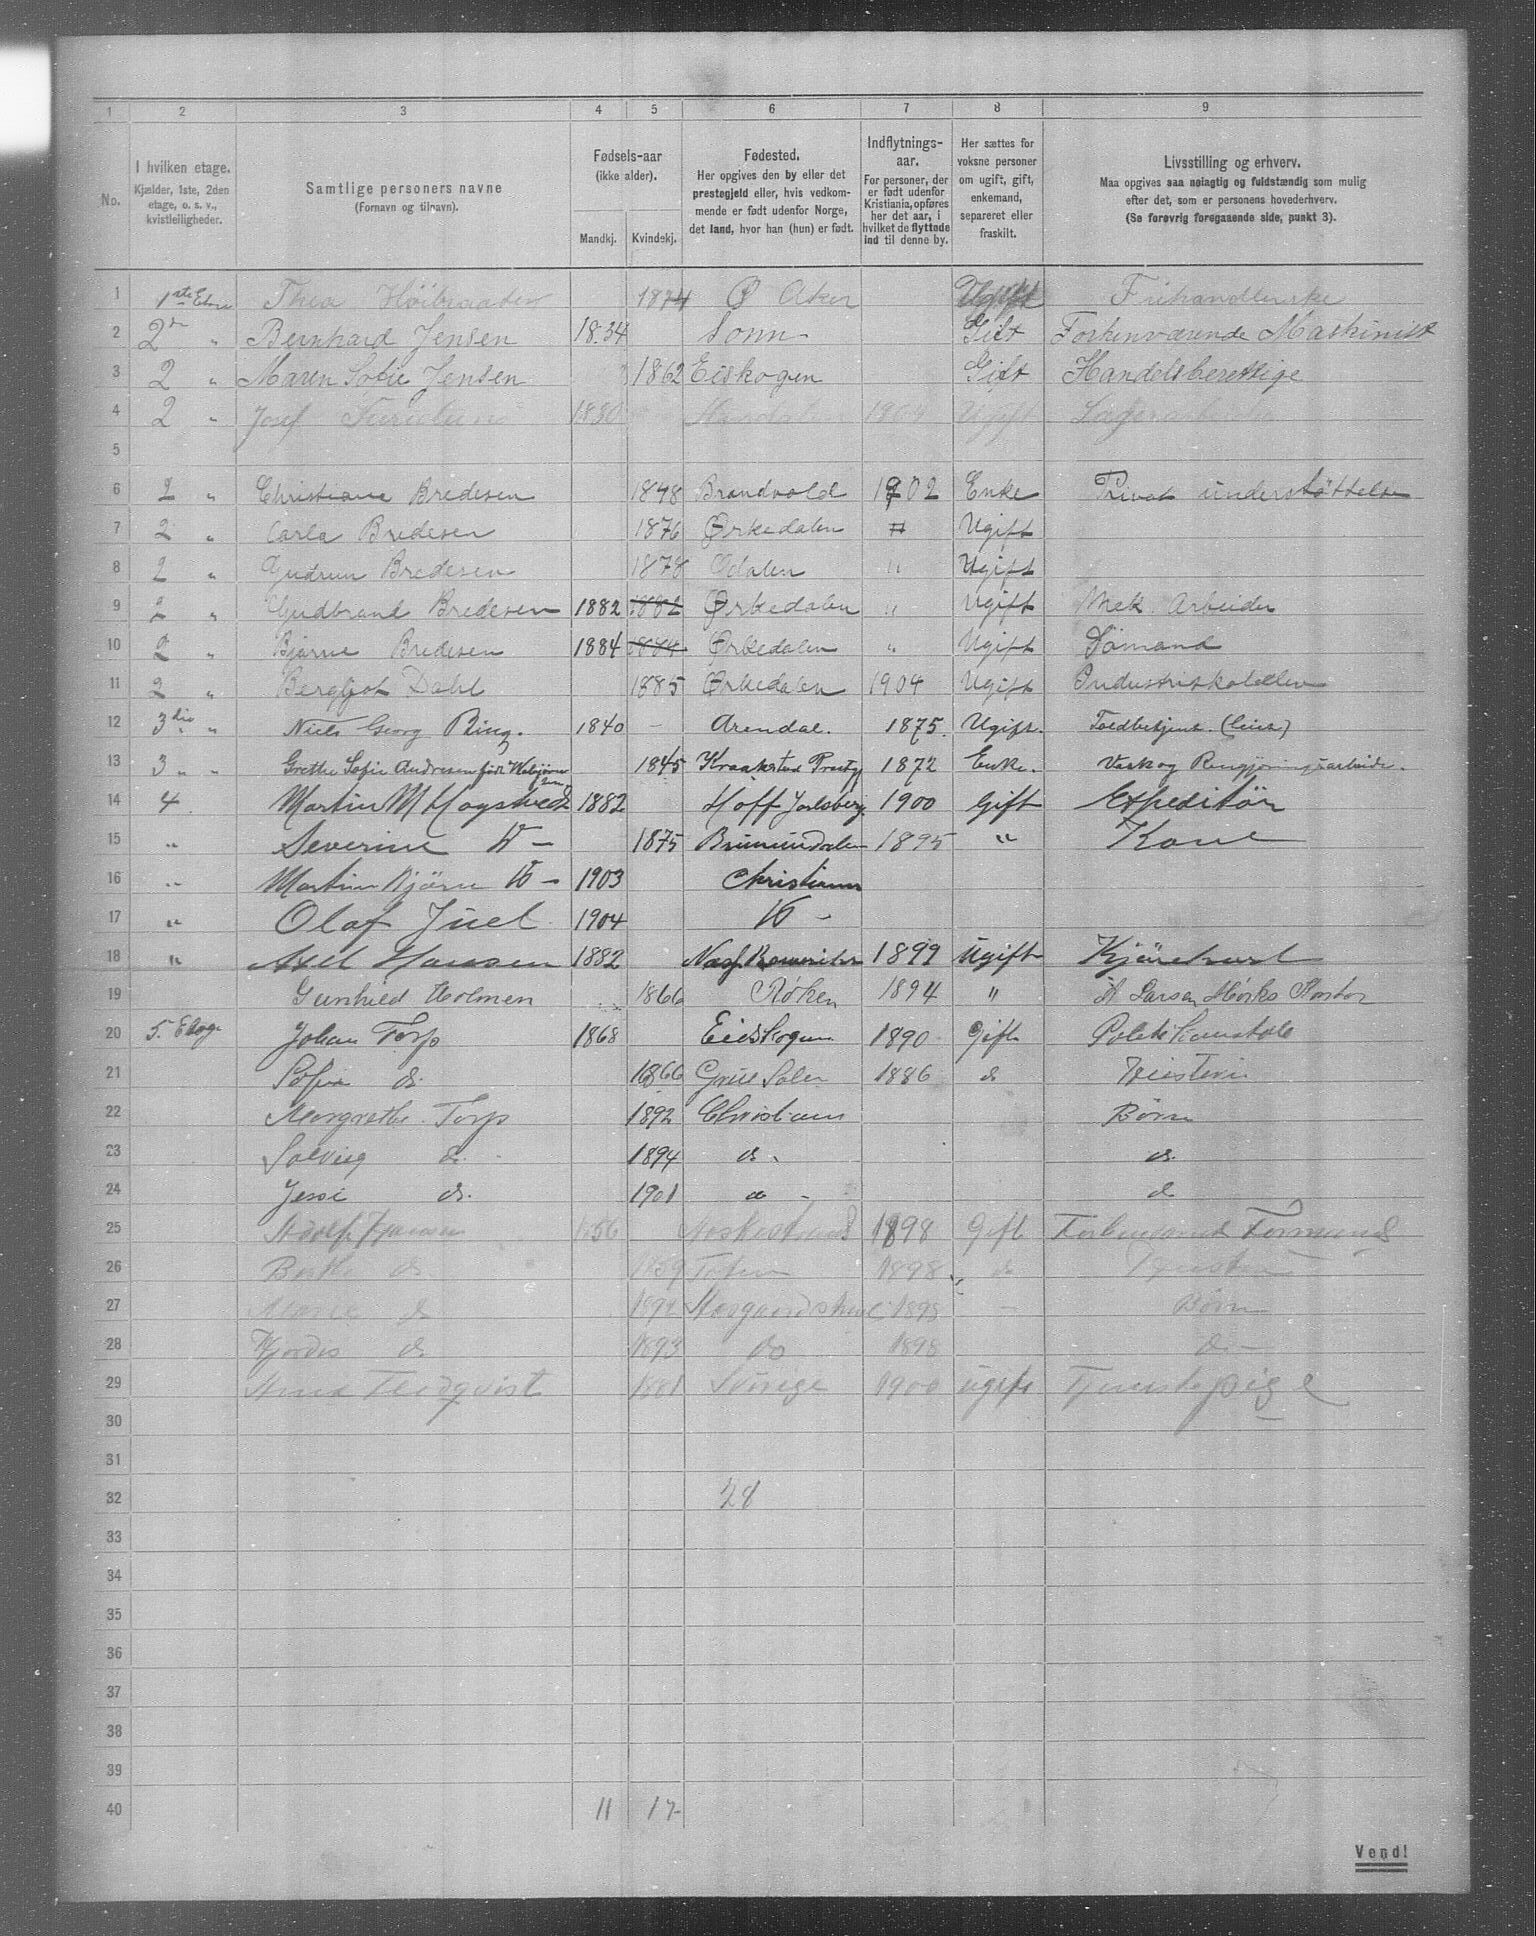 1 2 3 4 5 6 7 8 9
No.
I hvilken etage.
Kjælder, 1ste, 2den
etage, o. s. v.,
kvistleiligheder.
Samtlige personers navne
(Fornavn og tilnavn).
Fødsels-aar
(ikke alder).
Mandkj. Kvindekj.
Fødested.
Her opgives den by eller det
prestegjeld eller, hvis vedkom-
mende er født udenfor Norge,
det land, hvor han (hun) er født.
Indflytnings-
aar.
For personer, der
er født udenfor
Kristiania, opføres
her det aar, i
hvilket de flyttede
ind til denne by.
Her sættes for
voksne personer
om ugift, gift,
enkemand,
separeret eller
fraskilt.
Livsstilling og erhverv.
Maa opgives saa nøiagtig og fuldstændig som mulig
efter det, som er personens hovederhverv.
(Se forøvrig foregaaende side, punkt 3).
1 1ste Etage Thea 1874 Ø Aker Ugift Frihandlerske
2 2den " Bernhard Jensen 1834 Sonn Gift Forhenværende Maskinist
3 2 " Maren Sofie Jensen 1862 Eiskogen Gift Handelsberettige
4 2 " Josef 1880 Ugift
5
6 2 " Christiane Bredesen 1848 Brandvold 1902 Enke Privat understøttelse
7 2 " Carla Bredesen 1876 Ørkedalen " Ugift
8 2 " Gudrun Bredesen 1878 Odalen " Ugift
9 2 " Gudbrand Bredesen 1882 1882 Ørkedalen " Ugift Mek Arbeider
10 2 " Bjarne Bredesen 1884 1884 Ørkedalen " Ugift Sömand
11 2 " Bergljot Dahl 1885 Ørkedalen 1904 Ugift Industriskoleelev
12 3die " Niels Georg Ring. 1840 – Arendal. 1875. Ugift. Toldbetjent.
13 3 " " Grethe Sofie Andresen født 1845 Kraakstad Prestgj 1872 Enke. Vask og Rengjøringsarbeide.
14 4 Martin M Hogstvedt 1882 Hoff Jarlsberg. 1900 Gift Expeditör
15 " Severine 1875 Brumundalen 1895 " Kone
16 " Martin Bjørn 1903 Christiania
17 " Olaf Juel 1904
18 " Axel Hansen 1882 1899 Ugift Kjörekarl
19 Gunhild Holmen 1866 Røken 1894 "
20 5. Etage Johan Torp 1868 Eidskogen 1890 Gift Politikonstabel
21 Sofie do. 1866 Grue Soler 1886 do
22 Margrethe Torp 1892 Christiania Børn
23 Solveig do. 1894 do. do.
24 Jessi do. 1901 do – do
25 Adolf 1856 1898 Gift Forhenværende Formand
26 do 1859 Toten 1898 do
27 Marie do 1892 1898 – Børn
28 Hjordis do 1893 do 1898 do –
29 Anna 1881 Sverige 1900 ugift Tjenestepige
30
31
32 28
33
34
35
36
37
38
39
40 11 17
Vend!